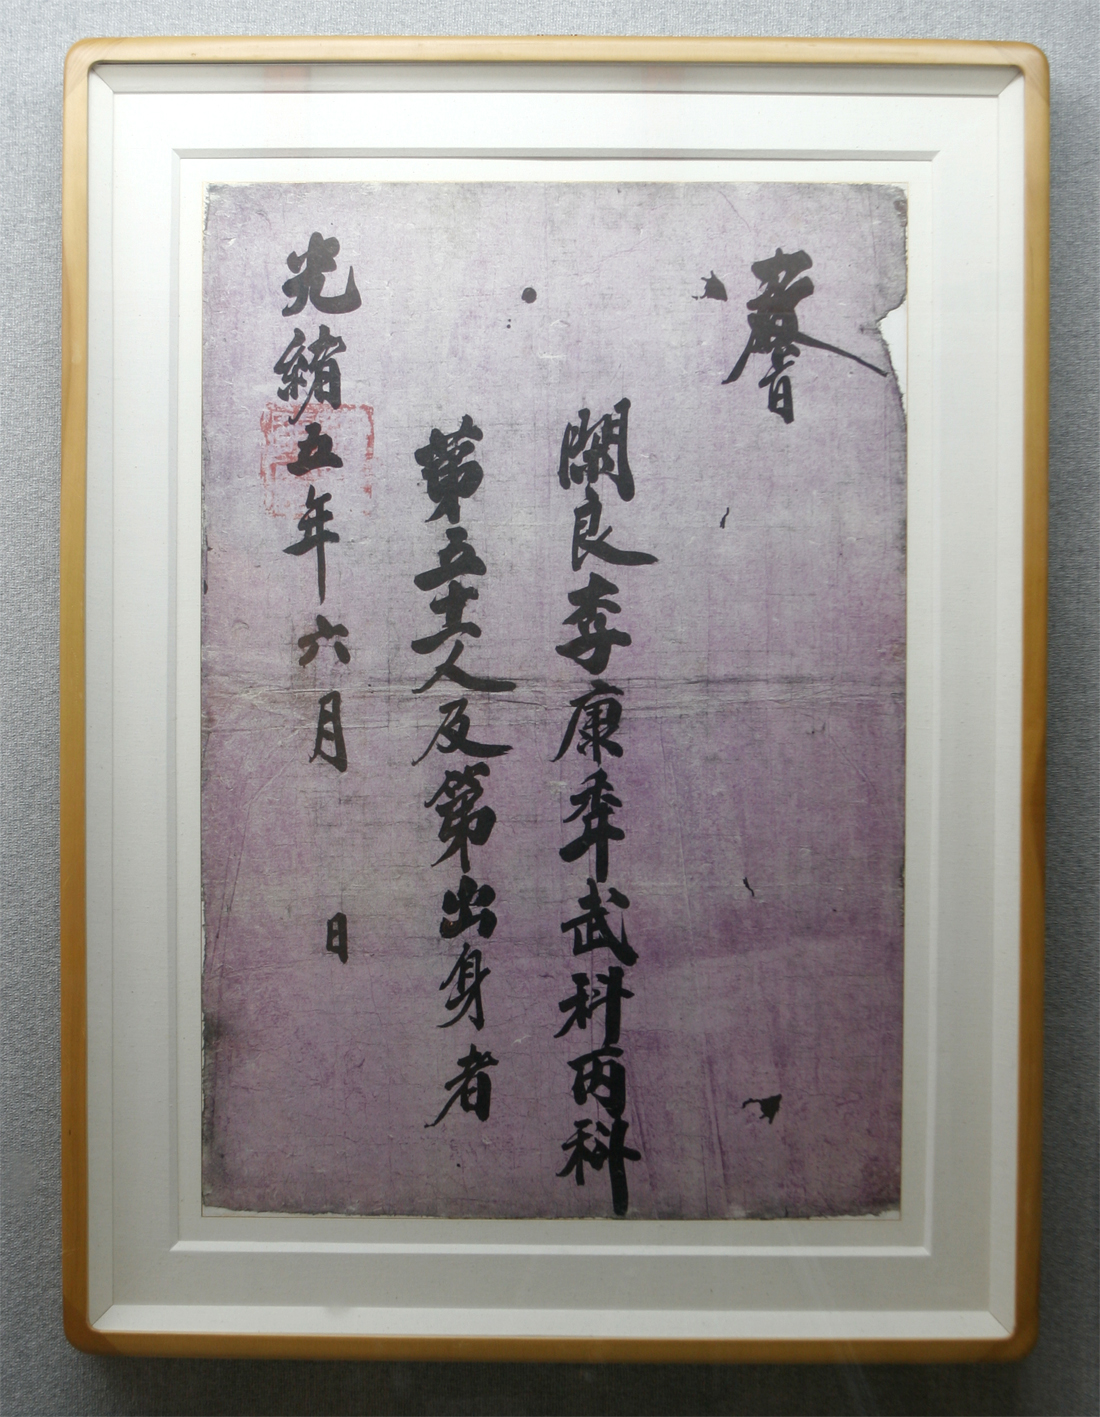 教旨
閑良李康秊武科丙科
第五十二人及第出身者
光緖五年六月 日